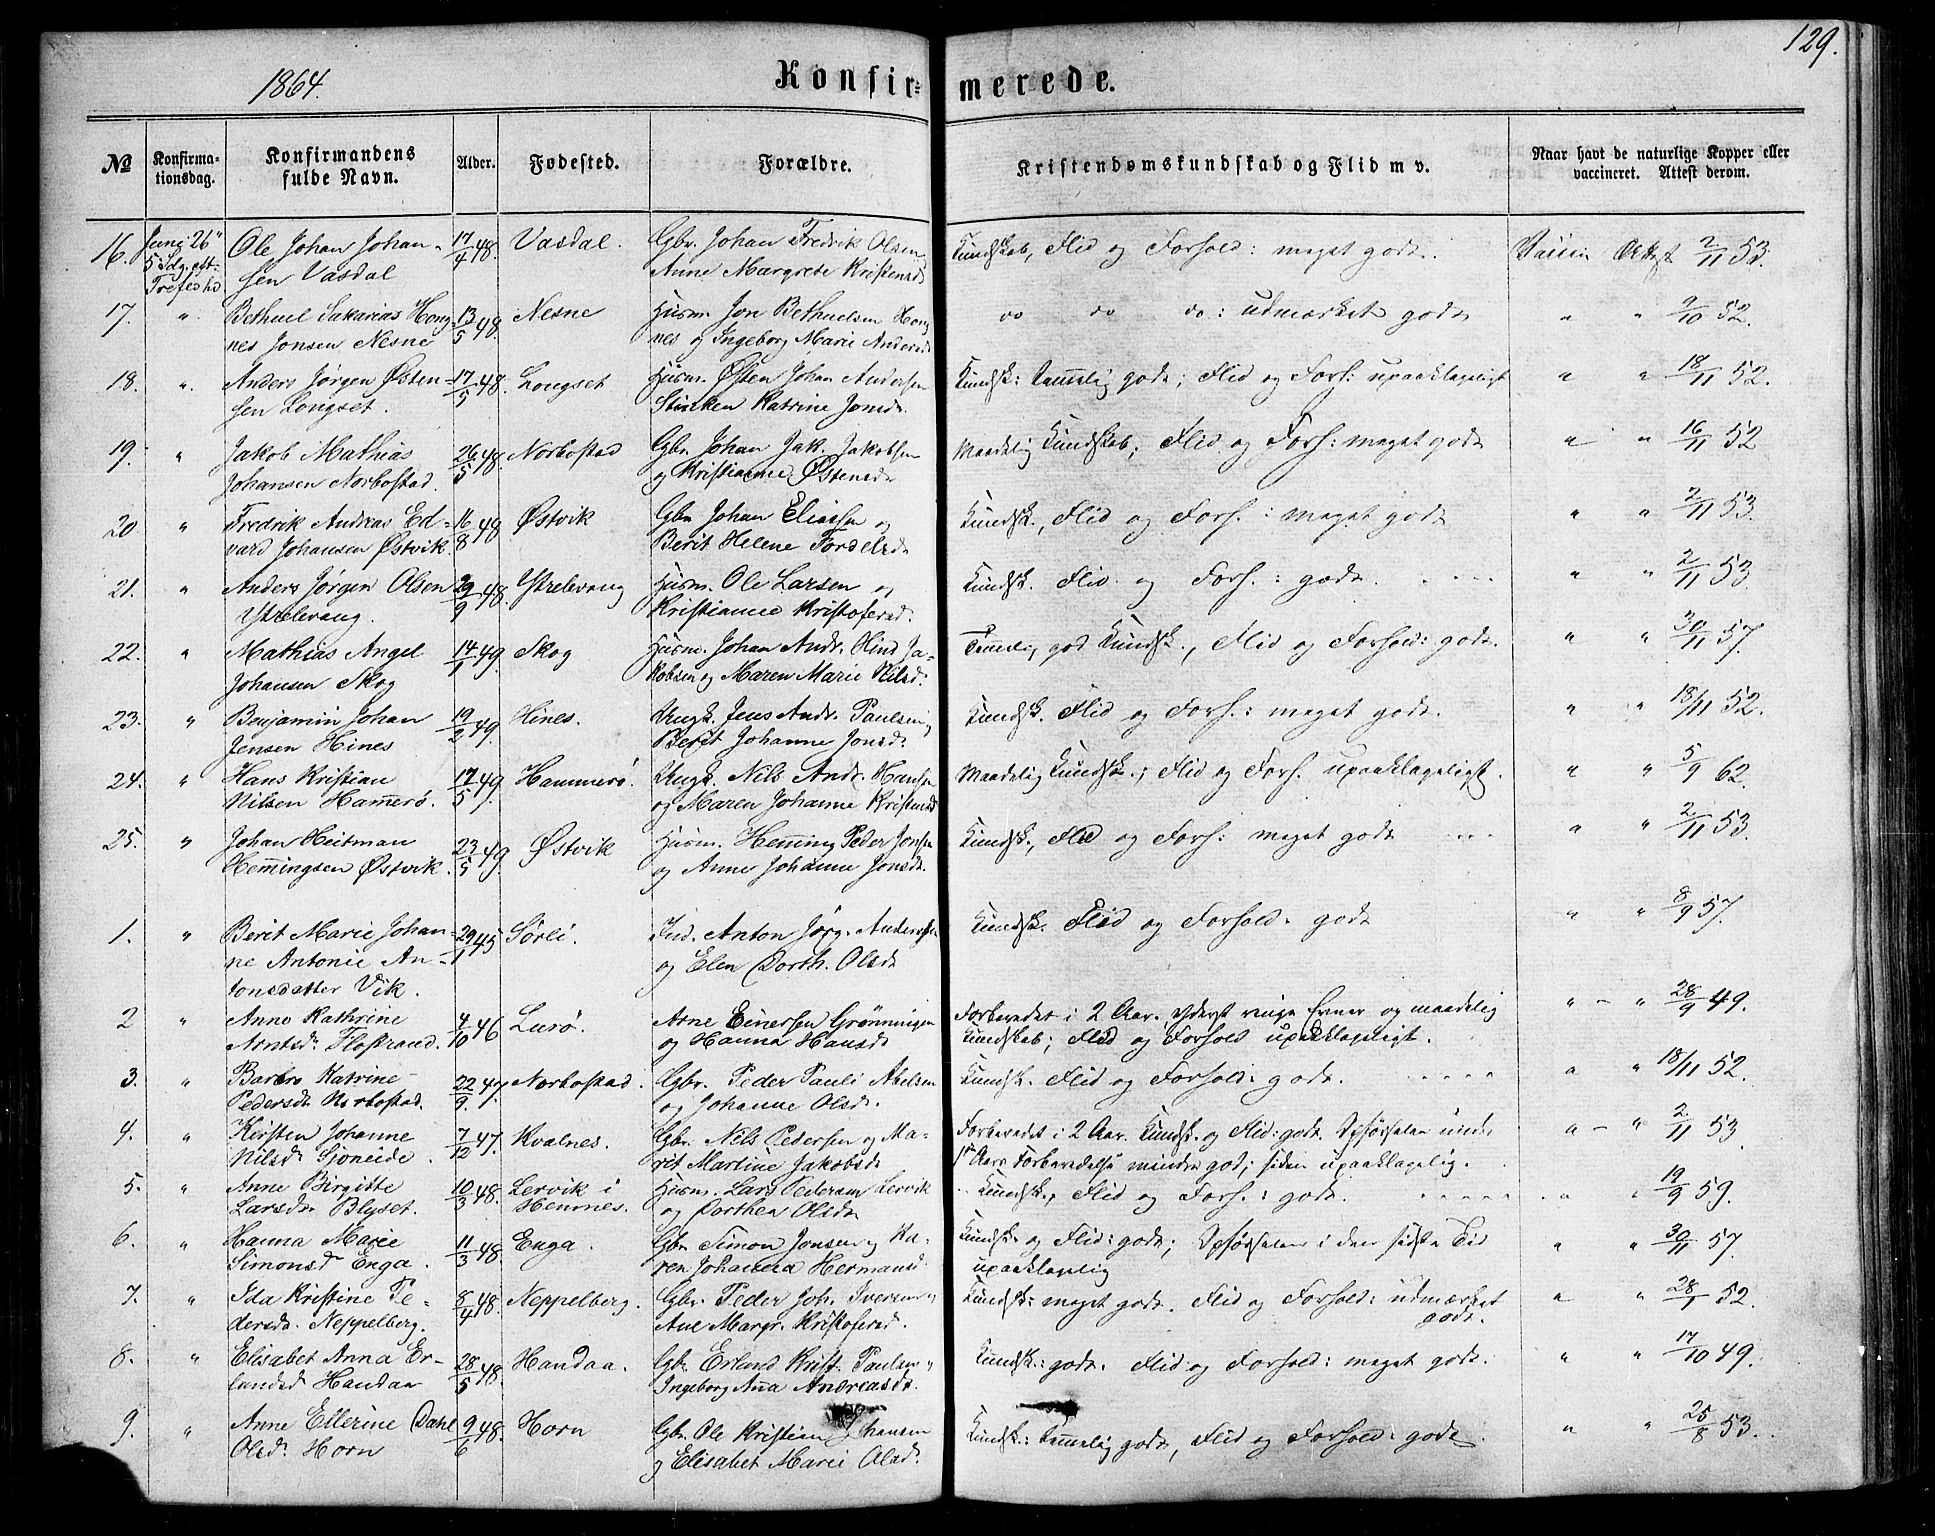 129.
1864.
Konfir= merede.
No
Konfirma-
tionsdag.
Konfirmandens
fulde Navn.
Alder.
Fødested.
Forældre.
Kristendomskundskab og Flid m v.
Naar havt de naturlige Kopper eller
vaccineret. Attest derom.
16. Juni 26" Ole Johan Johan- 17/4 48. Vasdal. Gbr. Johan Fredrik Olsen Kundskab, Flid og Forhold: meget godt. Attest 2/11 53.
5 Sdg. eft. Trefoldhd. sen Vasdal Anne Margrete Kristensd
17. " Bethuel Sakarias Hong- 13/5 48. Nesne Husm. Jon Bethuelsen Hong do do do: udmærket godt " " 2/10 52.
nes Jonsen Nesne nes og Ingeborg Marie Andersd
18. " Anders Jørgen Østen- 17/5 48. Longset Husm. Østen Johan Andersen Kundsk: Tammelig godt; Flid og Forh: upaaklageligt " " 18/11 52.
sen Longset. Katrine Jonsd.
19. " Jakob Mathias 26/5 48. Norbostad Gbr. Johan Jak. Jakobsen Maadelig Kundskab; Flid og Forh: meget godt " " 16/11 52
Johansen Norbostad. og Kristianne Østensd
20 " Fredrik Andreas Ed- 16/8 48 Østvik Gbr Johan Eliassen og Kundsk., Flid og Forh. : meget godt " " 2/11 53.
vard Johansen Østvik. Berit Helene Fordelsd
21. " Anders Jørgen Olsen 29/9 48. Ytrelevang Husm. Ole Larsen og Kundsk. Flid og Forh. : godt. " " 2/11 53
Ytrelevang. Kristianne Kristofersd.
22. " Mathias Angel 14/1 49. Skog Husm. Johan Andr. Hind Ja- Temmelig god Kundsk., Flid og Forhold: godt. " " 30/11 57.
Johansen Skog kobsen og Maren Marie Nilsd.
23. " Benjamin Johan 19/2 49. Hines. Ungk. Jens Andr. Paulsen Kundsk. Flid og Forh.: meget godt. " " 18/11 52.
Jensen Hines Berit Johanne Jonsd.
24. " Hans Kristian 17/5 49. Hammerø. Ungk. Nils Andr. Hansen Maadelig Kundsk.; Flid og Forh. upaaklageligt. " " 5/9 62.
Nilsen Hamerø. og Maren Johanne Kristensd
25. " Johan Heitman 23/5 49. Østvik Husm. Heming Peder Jonsen Kundsk., Flid og Forh: meget godt " " 2/11 53.
Hemingsen Østvik. og Anne Johanne Jonsd.
1. " Berit Marie Johan- 29/1 45 Sørli. Ind. Anton Jørg. Andersen Kundsk. Flid og Forhold: godt " " 8/9 57.
ne Antonie An- og Elen Dorth. Olsd
tonsdatter Vik.
2 " Anne Kathrine 4/10 46 Lurø. Arne Einersen Grønningen Forberedet i 2 Aar. Yderst ringe Evner og maadelig " – " 28/9 49.
Arntsd. Flostrand. og Hanna Hansd Kundskab; Flid og Forhold upaaklageligt.
3. " Barbro Katrine 22/9 47. Norbostad. Gbr. Peder Pauli Abelsen Kundsk. Flid og Forhold: godt. " " 18/11 52.
Pedersd. Norbostad. og Johanne Olsd.
4. " Kirsten Johanne 7/12 47. Kvalnes. Gbr. Nils Pedersen og Ma- Forberedet i 2 Aar. Kundsk. og Flid: godt. Opførselen under " – " 2/11 53
Nilsd Sjoneide. rit Martine Jakobsd 1ste Aars Forberedelse mindre god; siden upaaklagelig.
5. " Anne Birgitte 10/3 48. Lervik i Husm. Lars Pedersen Lervik Kundsk., Flid og Forh. : godt. " " 19/9 59.
Larsd. Blyset. Hemnes. og Dorthea Olsd
6. " Hanna Marie 11/3 48. Enga. Gbr. Simon Jonsen og Ka- Kundsk. og Flid: godt; Opførselen i den sidste Tid " " 30/11 57.
Simonsd Enga. ren Johanna Hermansd. upaaklagelig
7. " Ida Kristine Pe- 8/4 48. Neppelberg. Gbr. Peder Joh. Iversen Kundsk: meget godt. Flid og Forhold: udmærket " " 28/1 52.
dersd. Neppelberg. Ane Margr. Kristofersd. godt.
8. " Elisabet Anna Er- 28/5 48. Handaa. Gbr. Erlund Krist. Paulsen Kundsk.: godt. Flid og Forhold: meget godt. " " 17/10 49.
landsd Handaa Ingeborg Ana Andreasd.
9. " Anne Ellerine Dahl 9/6 48. Horn Gbr. Ole Kristian Johansen Kundsk.: Tammelig godt, Flid og Forhold: godt. " " 25/8 53.
Olsd. Horn og Elisabet Marie Olsd.